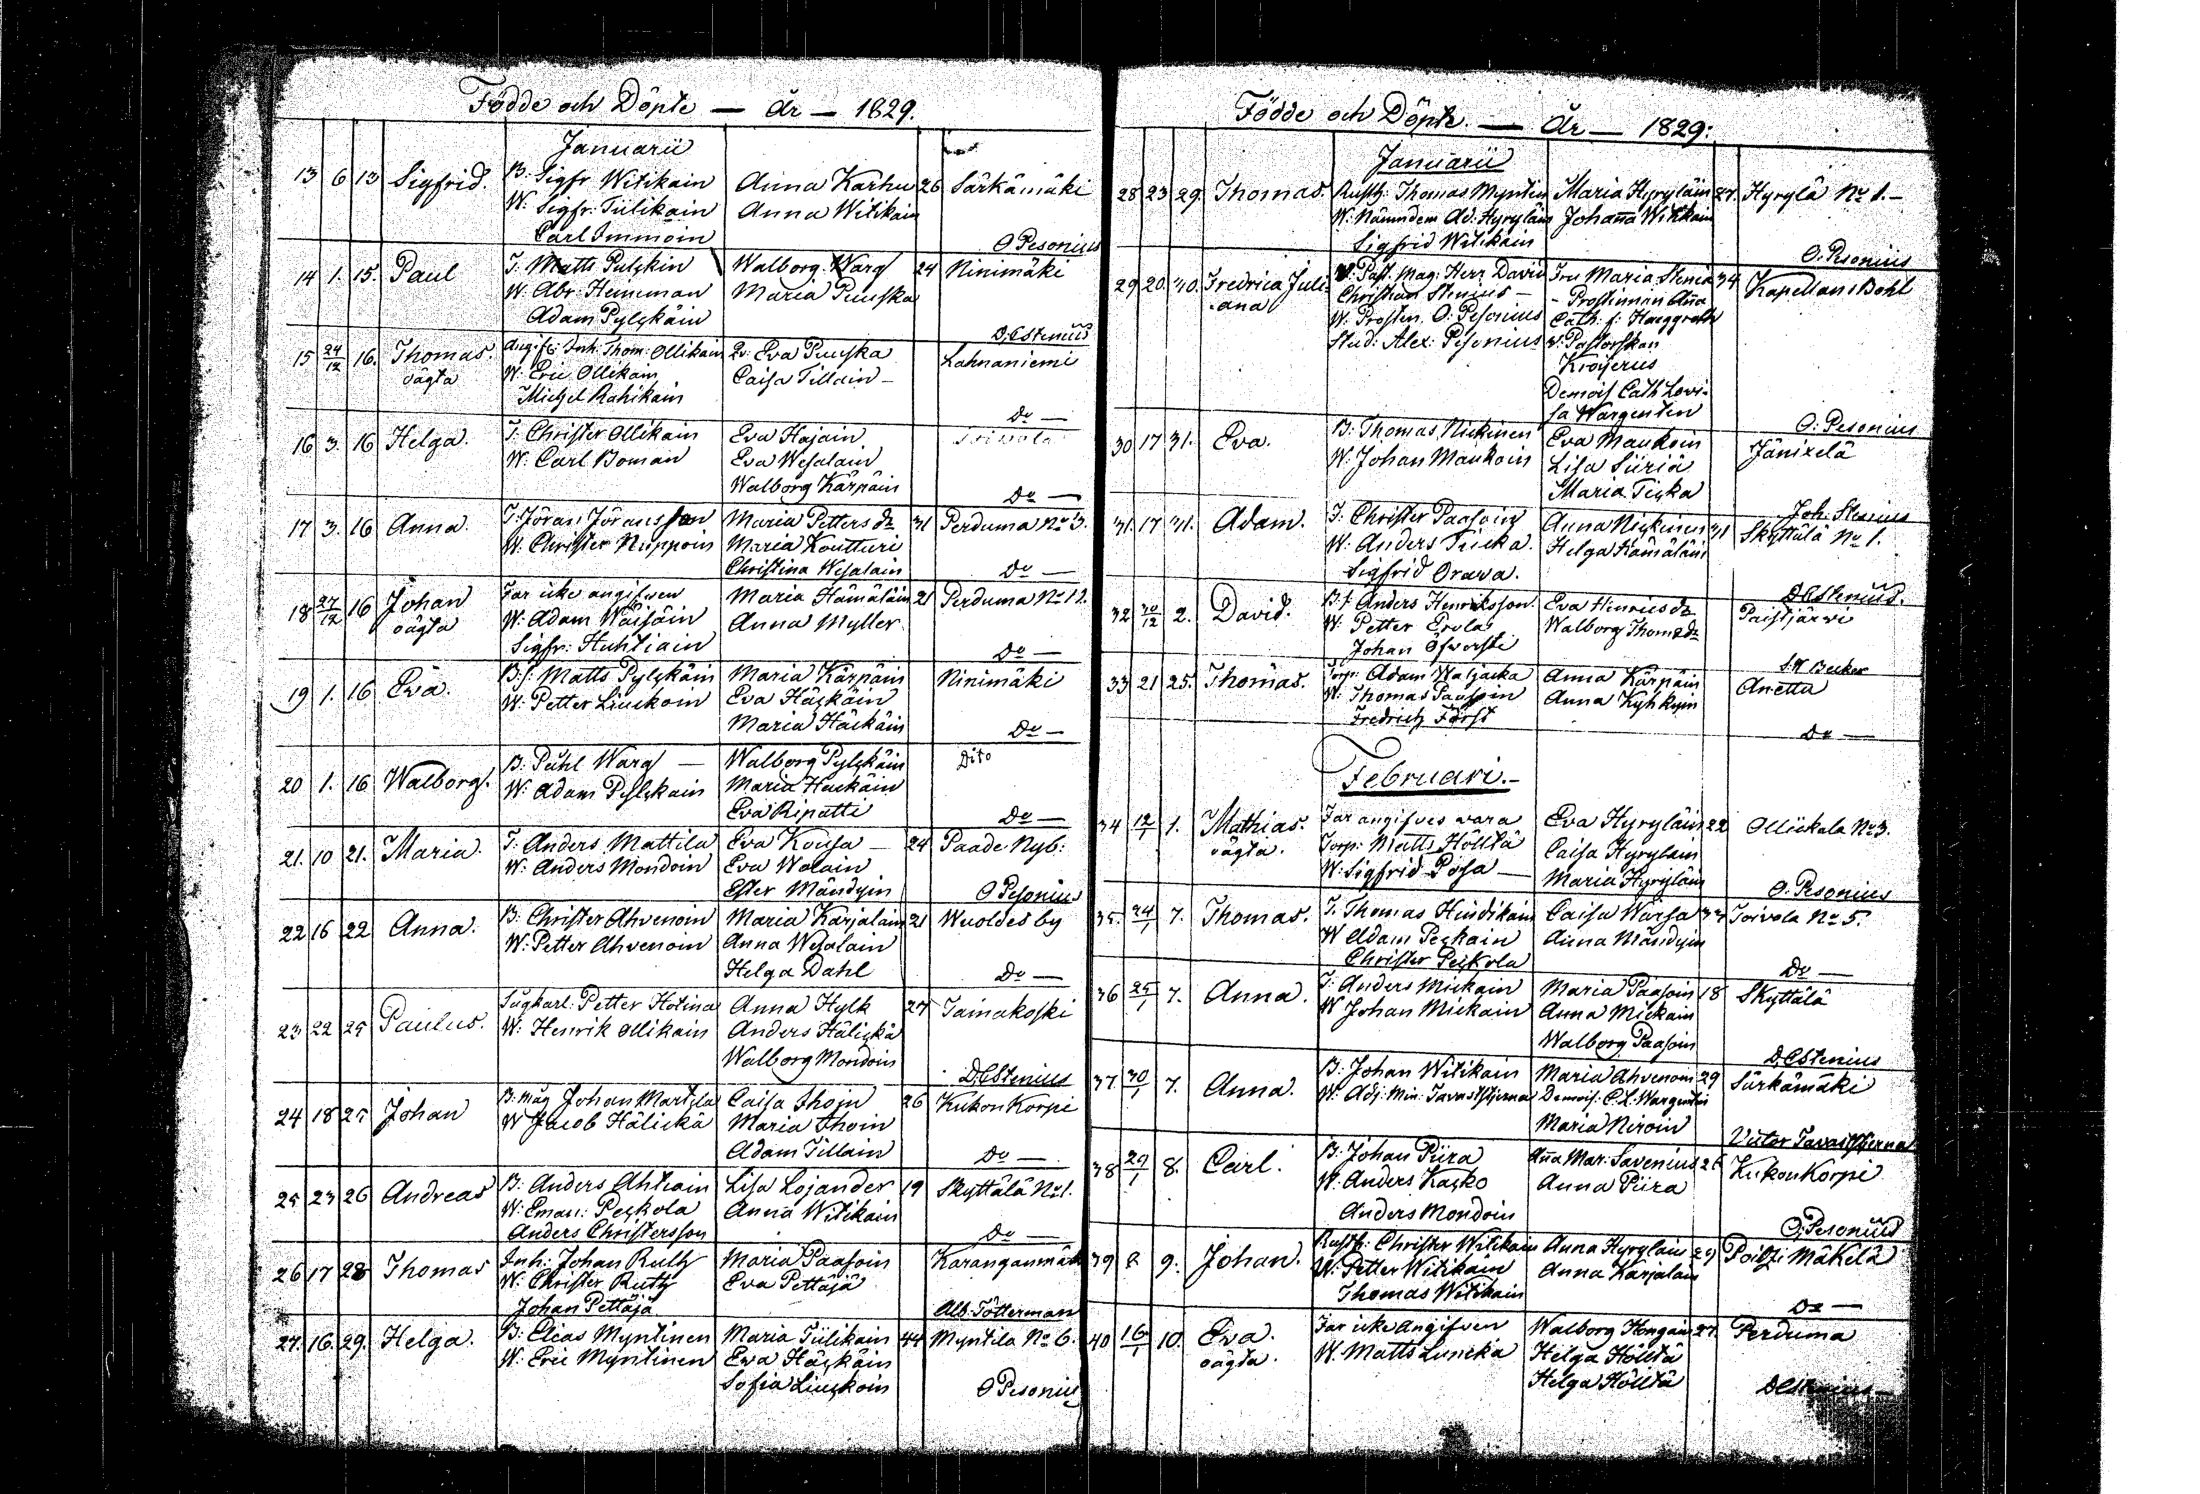 Födde och Döpte — År — 1829.
Januarii
13 6 13 Sigfrid. B: Sigfr Witikain Anna Karhu 26 Särkämäki
W: Sigfr: Tiilikain Anna Witikain
Carl Immoin O Pesonius
14 1. 15. Paul T: Matts Pulskin Walborg Warg 24 Ninimäki
W: Abr: Heinman Maria Puuska
Adam Pylzkäin D.C Stenius
15 24/12 16. Thomas. Angifv: Inh: Thom: Ollikain Q: Eva Puuska Lahnaniemi
oägta W: Eric Ollikain Caisa Tillain —
Michel Rahikain Do —
16 3. 16 Helga. T: Christer Ollikain Eva Hajain Toivola
W: Carl Boman Eva Wesalain
Walborg Kärpäin Do —
17 3. 16 Anna. T: Jöran Jöransson Maria Petters dr 31 Perduma No 3.
W: Christer Nuppoin Maria Koutturi
Christina Wesalain Do —
18 27/12 16 Johan Far icke angifven Maria Hämäläin 21 Perduma No 12.
oägta W: Adam Wäisäin Anna Myller
Sigfr: Huhtiain Do —
19 1. 16 Eva. B: f: Matts Pylzkäin Maria Kärpäin Ninimäki
W: Petter Liuckoin Eva Häckäin
Maria Häckäin Do —
20 1. 16 Walborg. B: Påhl Warg — Walborg Pylzkäin Dito
W: Adam Pylzkain Maria Hackäin
Eva Ripatti Do —
21. 10 21. Maria. T: Anders Mattila Eva Kousa — 24 Paade Nyb:
W: Anders Mondoin Eva Wolain
Ester Mändyin O Pesonius
22 16 22 Anna. B: Christer Ahvenoin Maria Karjalain 21 Wuoldes by
W: Petter Ahvenoin Anna Wesalain
Helga Dahl Do —
23 22 25 Paulus. Sågkarl: Petter Hotina Anna Hylk 27 Tainakoski
W: Henrik Ollikain Anders Hälickä
Walborg Mondoin D.C Stenius
24 18 25 Johan B: Måg Johan Martzla Caisa Ihoin 26 Kukonkorpi
W Jacob Hälickä Maria Ihoin
Adam Tillain Do —
25 23 26 Andreas B: Anders Ahtiain Lisa Lojander 19 Skyttälä No 1.
W: Eman: Peskola Anna Witikain
Anders Christersson Do —
26 17 28 Thomas Inh: Johan Ruth Maria Paasoin Karanganmäki
W: Christer Ruth Eva Pettäjä
Johan Pettäjä Alb: Tötterman
27. 16. 29. Helga. B: Elias Myntinen Maria Tiilikain 44 Myntila No 6.
W: Eric Myntinen Eva Häckäin
Sofia Liuckoin O Pesonius
Födde och Döpte. — År — 1829:
Januarii
28 23 29. Thomas. Rusth: Thomas Myntin Maria Hyryläin 27. Hyrylä No 1. —
W: Nämndem Ad: Hyryläin Johanna Witikain
Sigfrid Witikain O: Pesonius
29 20 30. Fredrica Juli- V: Past. Mag: Herr David Fru Maria Stenia 34 Kapellans Bohl
ana Christian Stenius — - Prostinnan Anna
W: Prosten O: Pesonius Cath: f: Haeggroth
Stud: Alex: Pesonius V: Pastorskan
Kröijerus
Demois Cath Lovi-
sa Wargentin O: Pesonius
30 17 31. Eva. B: Thomas Nickinen Eva Maukoin Jänixelä
W: Johan Maukoin Lisa Siiriä
Maria Ticka Joh: Stenius
31. 17 31. Adam. T: Christer Paasoin Anna Nickinen 31 Skyttälä No 1.
W: Anders Tiicka. Helga Hämäläin
Sigfrid Orawa. D.C Stenius.
32 30/12 2. David. B: f: Anders Henriksson Eva Henrics dr Paistjärvi
W: Petter Erola Walborg Thoms dr
Johan Öfversti S.W Becker
33 21 25. Thomas. Torp: Adam Waljacka Anna Kärpäin Anetta
W: Thomas Paasoin Anna Kyhkyin
Fredrich Först Do —
Februari. —
34 12/1 1. Mathias. Far angifves vara Eva Hyryläin 22 Ollickala No 3.
oägta. Torp: Matts Hölttä Caisa Hyryläin
W: Sigfrid Posa — Maria Hyryläin O: Pesonius
35. 24/1 7. Thomas. T. Thomas Hindikain Caisa Warsa 33 Toivola No 5.
W Adam Peskain Anna Mändyin
Christer Peskola Do —
36 25/1 7. Anna. T: Anders Mickain Maria Paasoin 18 Skyttälä
W Johan Mickain Anna Mickain
Walborg Paasoin D.C Stenius
37. 30/1 7. Anna. B: Johan Witikain Maria Ahvenoin 29 Särkämäki
W: Adj: Min: Tavaststjerna Demois: C.L: Wargentin
Maria Niroin Victor Tavaststjerna
38 29/1 8. Carl. B: Johan Piira Anna Mar: Savenius 26 Kukonkorpi
W. Anders Kasko Anna Piira
Anders Mondoin O: Pesonius
39 8 9. Johan. Rusth: Christer Witikain Anna Hyryläin 29 Poitzi Mäkelä
W: Petter Witikain Anna Karjalain
Thomas Witikain Do —
40 16/1 10. Eva. Far icke Angifven Walborg Hongain 27. Perduma
oägta. W. Matts Luncka Helga Hölttä
Helga Hölttä DC Stenius —